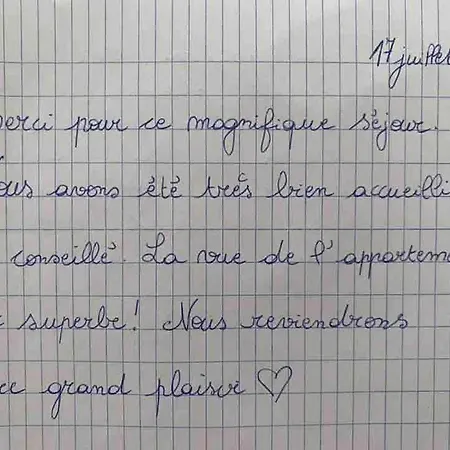 17 juillet
erci pour ce magnifique séjour.
ous avons été très bien accueilli
conseillé. La vue de l'appartem
superbe! Nous reviendrons
ec grand plaisir ♡